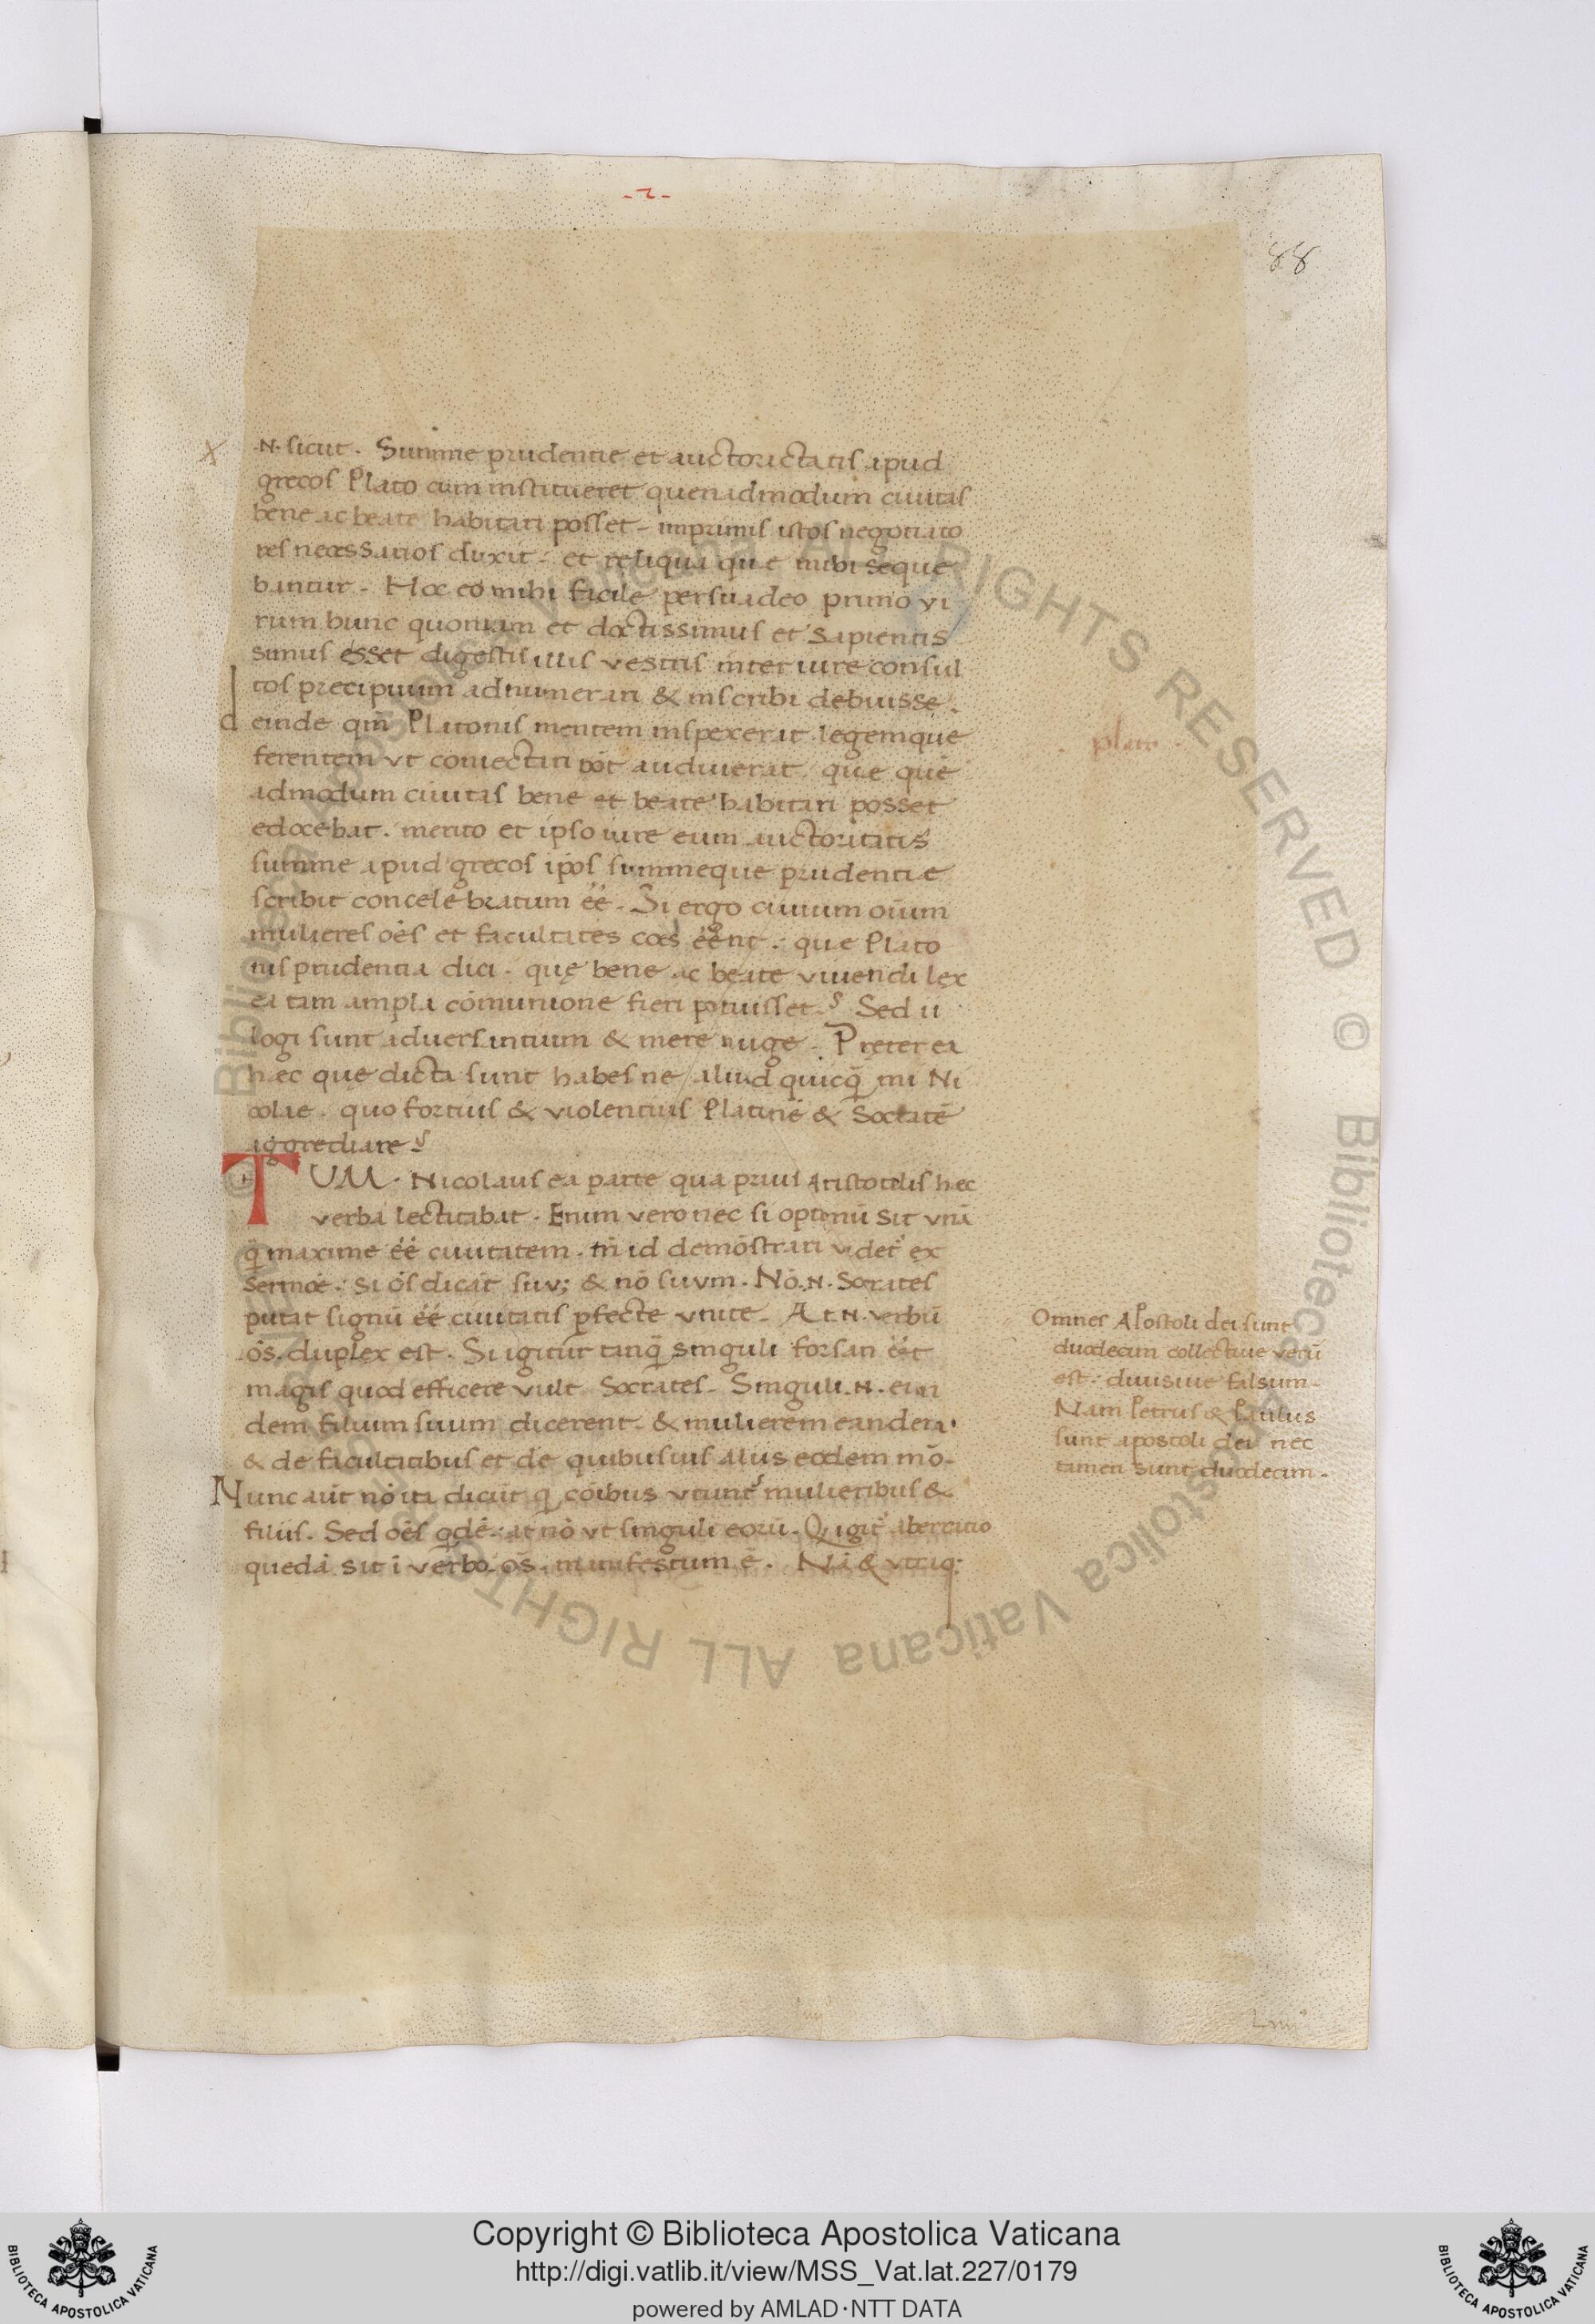 -2-
88
.N. sicut. Summe prudentie et auctorictatis apud
grecos Plato cum institueret quenadmodum ciuitas
bene ac beate habitari posset. imprimis istos negotiato
res necessarios duxit: et reliqua que inibi seque
bantur. Hoc eo mihi facile persuadeo primo vi
rum hunc quoniam et doctissimus et sapientis
simus esset digestis illis vestris inter iure consul
tos precipuum adnumerari & inscribi debuisse.
deinde qm̄ Platonis mentem inspexerit legemque
ferentem vt coniectari pōt audiuerat. que quē
admodum ciuitas bene et beate habitari posset
edocebat. merito et ipso iure eum auctoritatis
summe apud grecos ip̄os summeque prudentie
scribit concelebratum ēē. Si ergo ciuium oīum
mulieres oēs et facultates cōēs ēēnt: que Plato
nis prudentia dici. quę bene ac beate viuendi lex
ea tam ampla cōmunione fieri potuisset? Sed ii
logi sunt aduersantium & mere nuge. Pręter ea
hęc quę dicta sunt habes ne aliud quicq̄ mi Ni
colae. quo fortius & violentius Platonē & Socratē
aggrediare?
TUM. Nicolaus ea parte qua prius Aristotelis hec
verba lectitabat. Enim vero nec si optimū sit vnā
q̄ maxime ēē ciuitatem. tn̄ id demōstrari videt̄ ex
sermōe: si ōs dicāt suū; & nō suvm. Nō .N. Socrates
putat signū ēē ciuitatis ꝑfecte vnite. At .N. verbū
ōs. duplex est. Si igitur tanq̄ singuli forsan ēēt
magis quod efficere vult Socrates. Singuli .N. eun
dem filium suum dicerent. & mulierem eandem.
& de facultatibus et de quibusuis aliis eodem mō.
Nunc aūt nō ita dicūt q̄ cōibus vtunt̄ mulieribus &
filiis. Sed oēs qdē: at nō vt singuli eorū. Q, igit̄ aberratio
quedā sit ī verbo. ōs. manifestum ē. Nā & vtraq;
plato
Omnes Apostoli dei sunt
duodecim collectiue verū
est: diuisiue falsum.
Nam Petrus & Paulus
sunt apostoli dei nec
tamen sunt duodecim.
Biblioteca Apostolica Vaticana ALL RIGHTS RESERVED ©
Copyright © Biblioteca Apostolica Vaticana
http://digi.vatlib.it/view/MSS_Vat.lat.227/0179
powered by AMLAD·NTT DATA
BIBLIOTECA APOSTOLICA VATICANA
BIBLIOTECA APOSTOLICA VATICANA